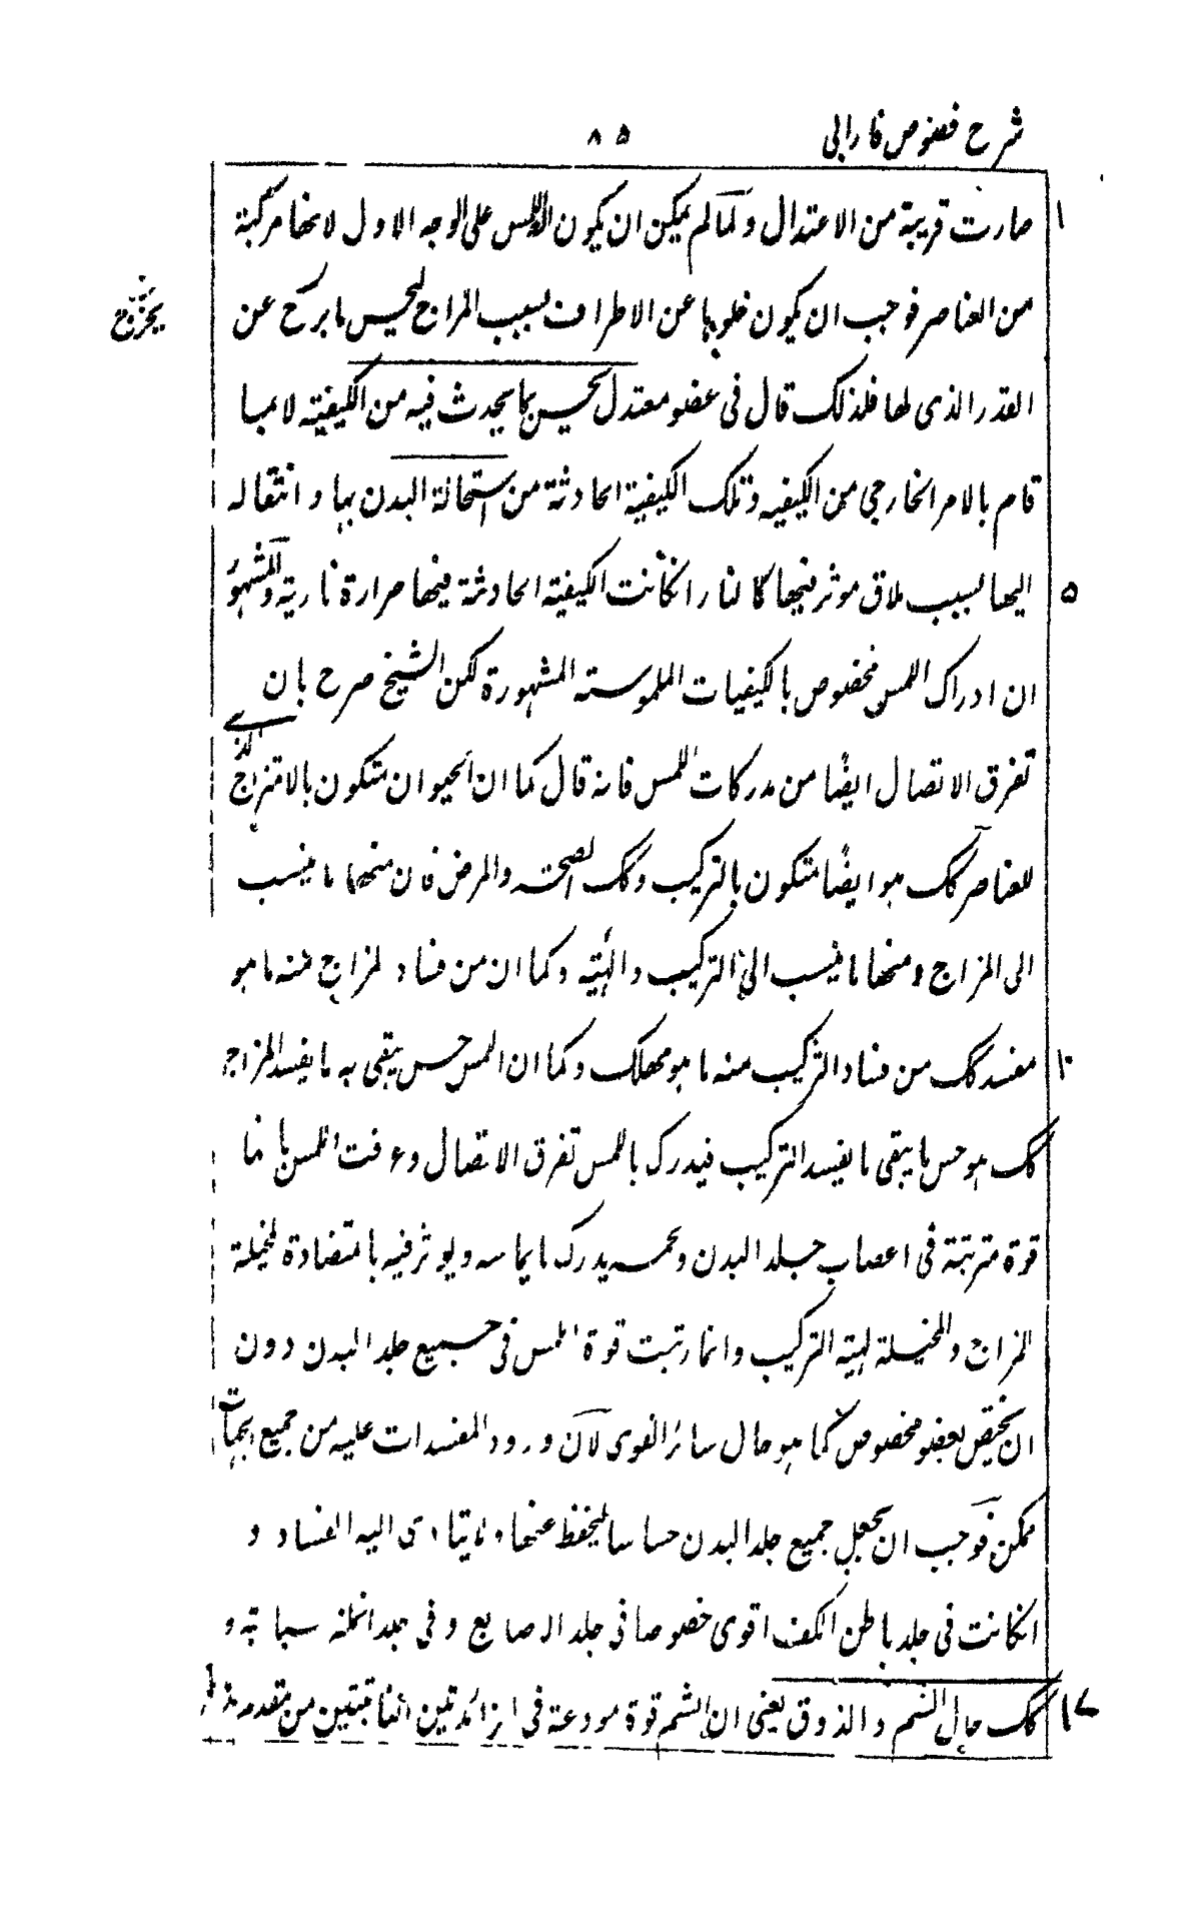 شرح فصوص فارابی ۸۵
۱ صارت قریبة من الاعتدال ولمالم یمکن ان یکون اللمس علی الوجه الاول لانها مرکبة
من العناصر فوجب ان یکون خلوها عن الاطراف بسبب المزاج لیحس مابرکح عن
یخرج
القدر الذی لها فلذلک قال فی عضو معتدل یحس بما یحدث فیه من الکیفیة لا بما
قام بالامر الخارجی من الکیفیه وتلک الکیفیة الحادثة من استحالة البدن بها وانتقاله
۵ الیها بسبب ملاق موثر فیها کالنار انکانت الکیفیة الحادثة فیها حرارة ناریة والمشهور
ان ادراک اللمس مخصوص بالکیفیات الملموسة المشهورة لکن الشیخ صرح بان
تفرق الاتصال ایضًا من مدرکات اللمس فانه قال کما ان الحیوان متکون بالامتزاج الذے
للعناصر کک هو ایضًا متکون بالترکیب وکک الصحة والمرض فان منها ما ینسب
الی المزاج ومنها ما ینسب الی الترکیب والهیئة وکما ان من فساد المزاج منه ما هو
۱۰ مفسد کک من فساد الترکیب منه ما هو مهلک وکما ان اللمس حس یتقی به ما یفسد المزاج
کک هو حس یتقی ما یفسد الترکیب فیدرک باللمس تفرق الاتصال وعرفت اللمس بانها
قوة مترتبة فی اعصاب جلد البدن ولحمه یدرک ما یماسه ویوثر فیه بالمتضادة المحیلة
المزاج والمحیلة لهیئة الترکیب وانما رتبت قوة اللمس فی جمیع جلد البدن دون
ان یختص بعضو مخصوص کما هو حال سائر القوی لان ورود المفسدات علیه من جمیع الجهات
ممکن فوجب ان یجعل جمیع جلد البدن حساسا لیحفظ عنها ولا یتادی الیه الفساد و
انکانت فی جلد باطن الکف اقوی خصوصا فی جلد الاصابع وفی جلد انملة سبابة و
۱۷ کک حال الشم والذوق یعنی ان الشم قوة مودعة فی الزائدتین النابتتین من مقدم